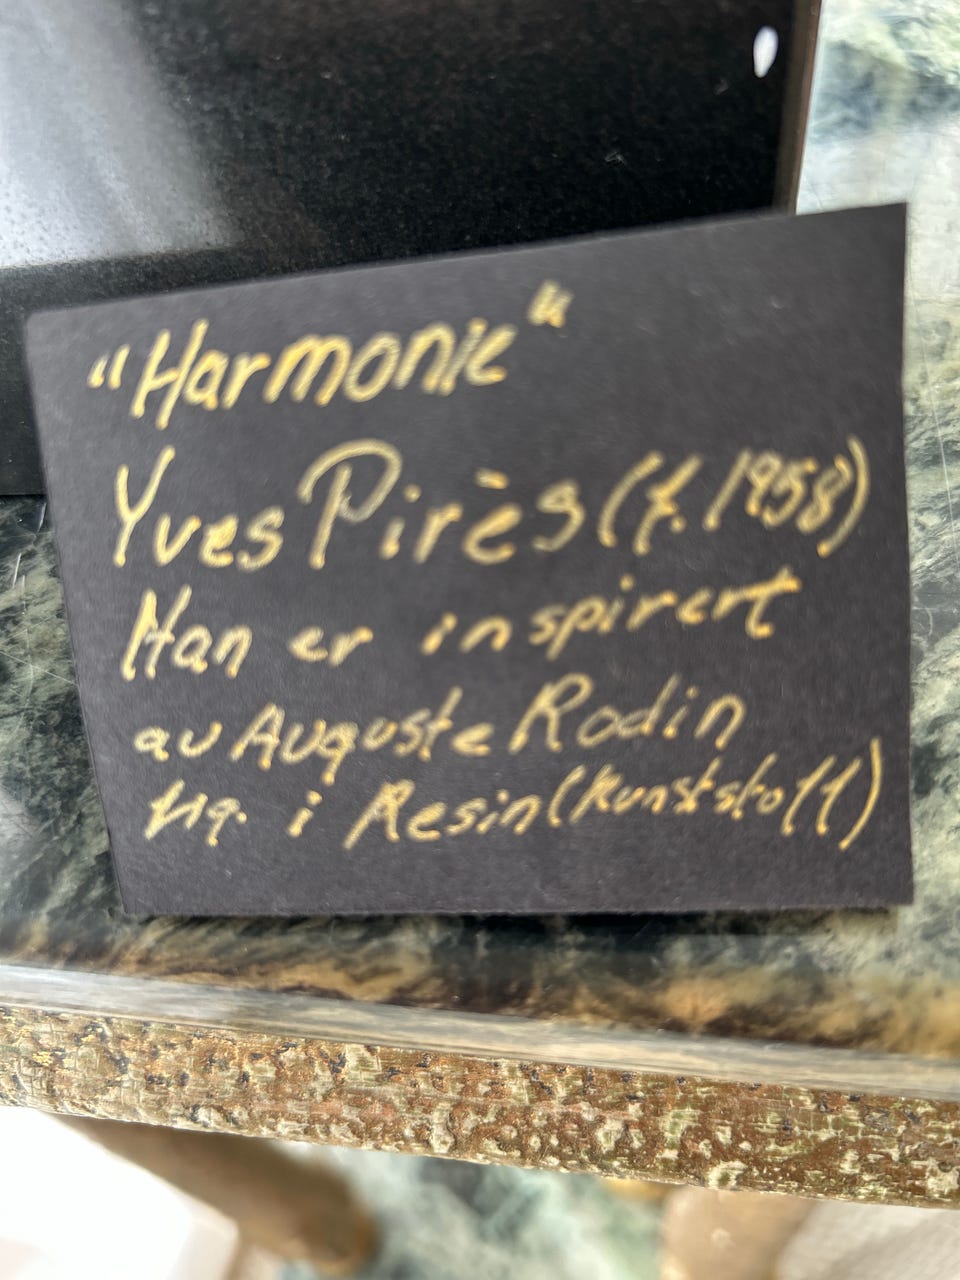 "Harmonie"
Yves Pirès (f. 1958)
Han er inspirert
av Auguste Rodin
Fig. i Resin (kunststoff)